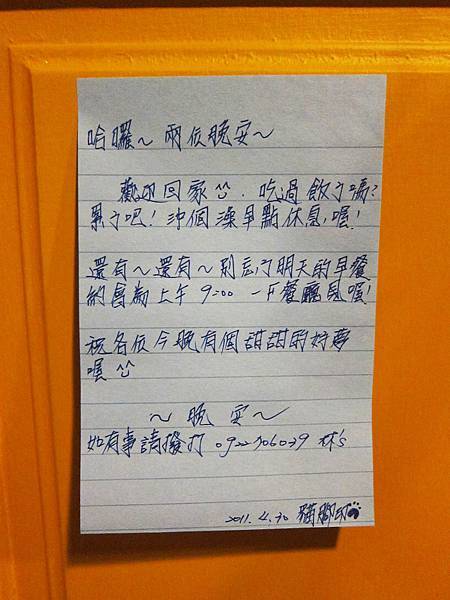 哈囉~ 兩位晚安~
歡迎回家^^. 吃過飯了嗎?
累了吧! 沖個澡早點休息喔!
還有~還有~別忘了明天的早餐
約會為上午 9:00 一F餐廳見喔!
祝各位今晚有個甜甜的好夢
喔 ^^
~ 晚 安 ~
如有事請撥打 0922706039 林's
2011. 4. 30 貓腳印